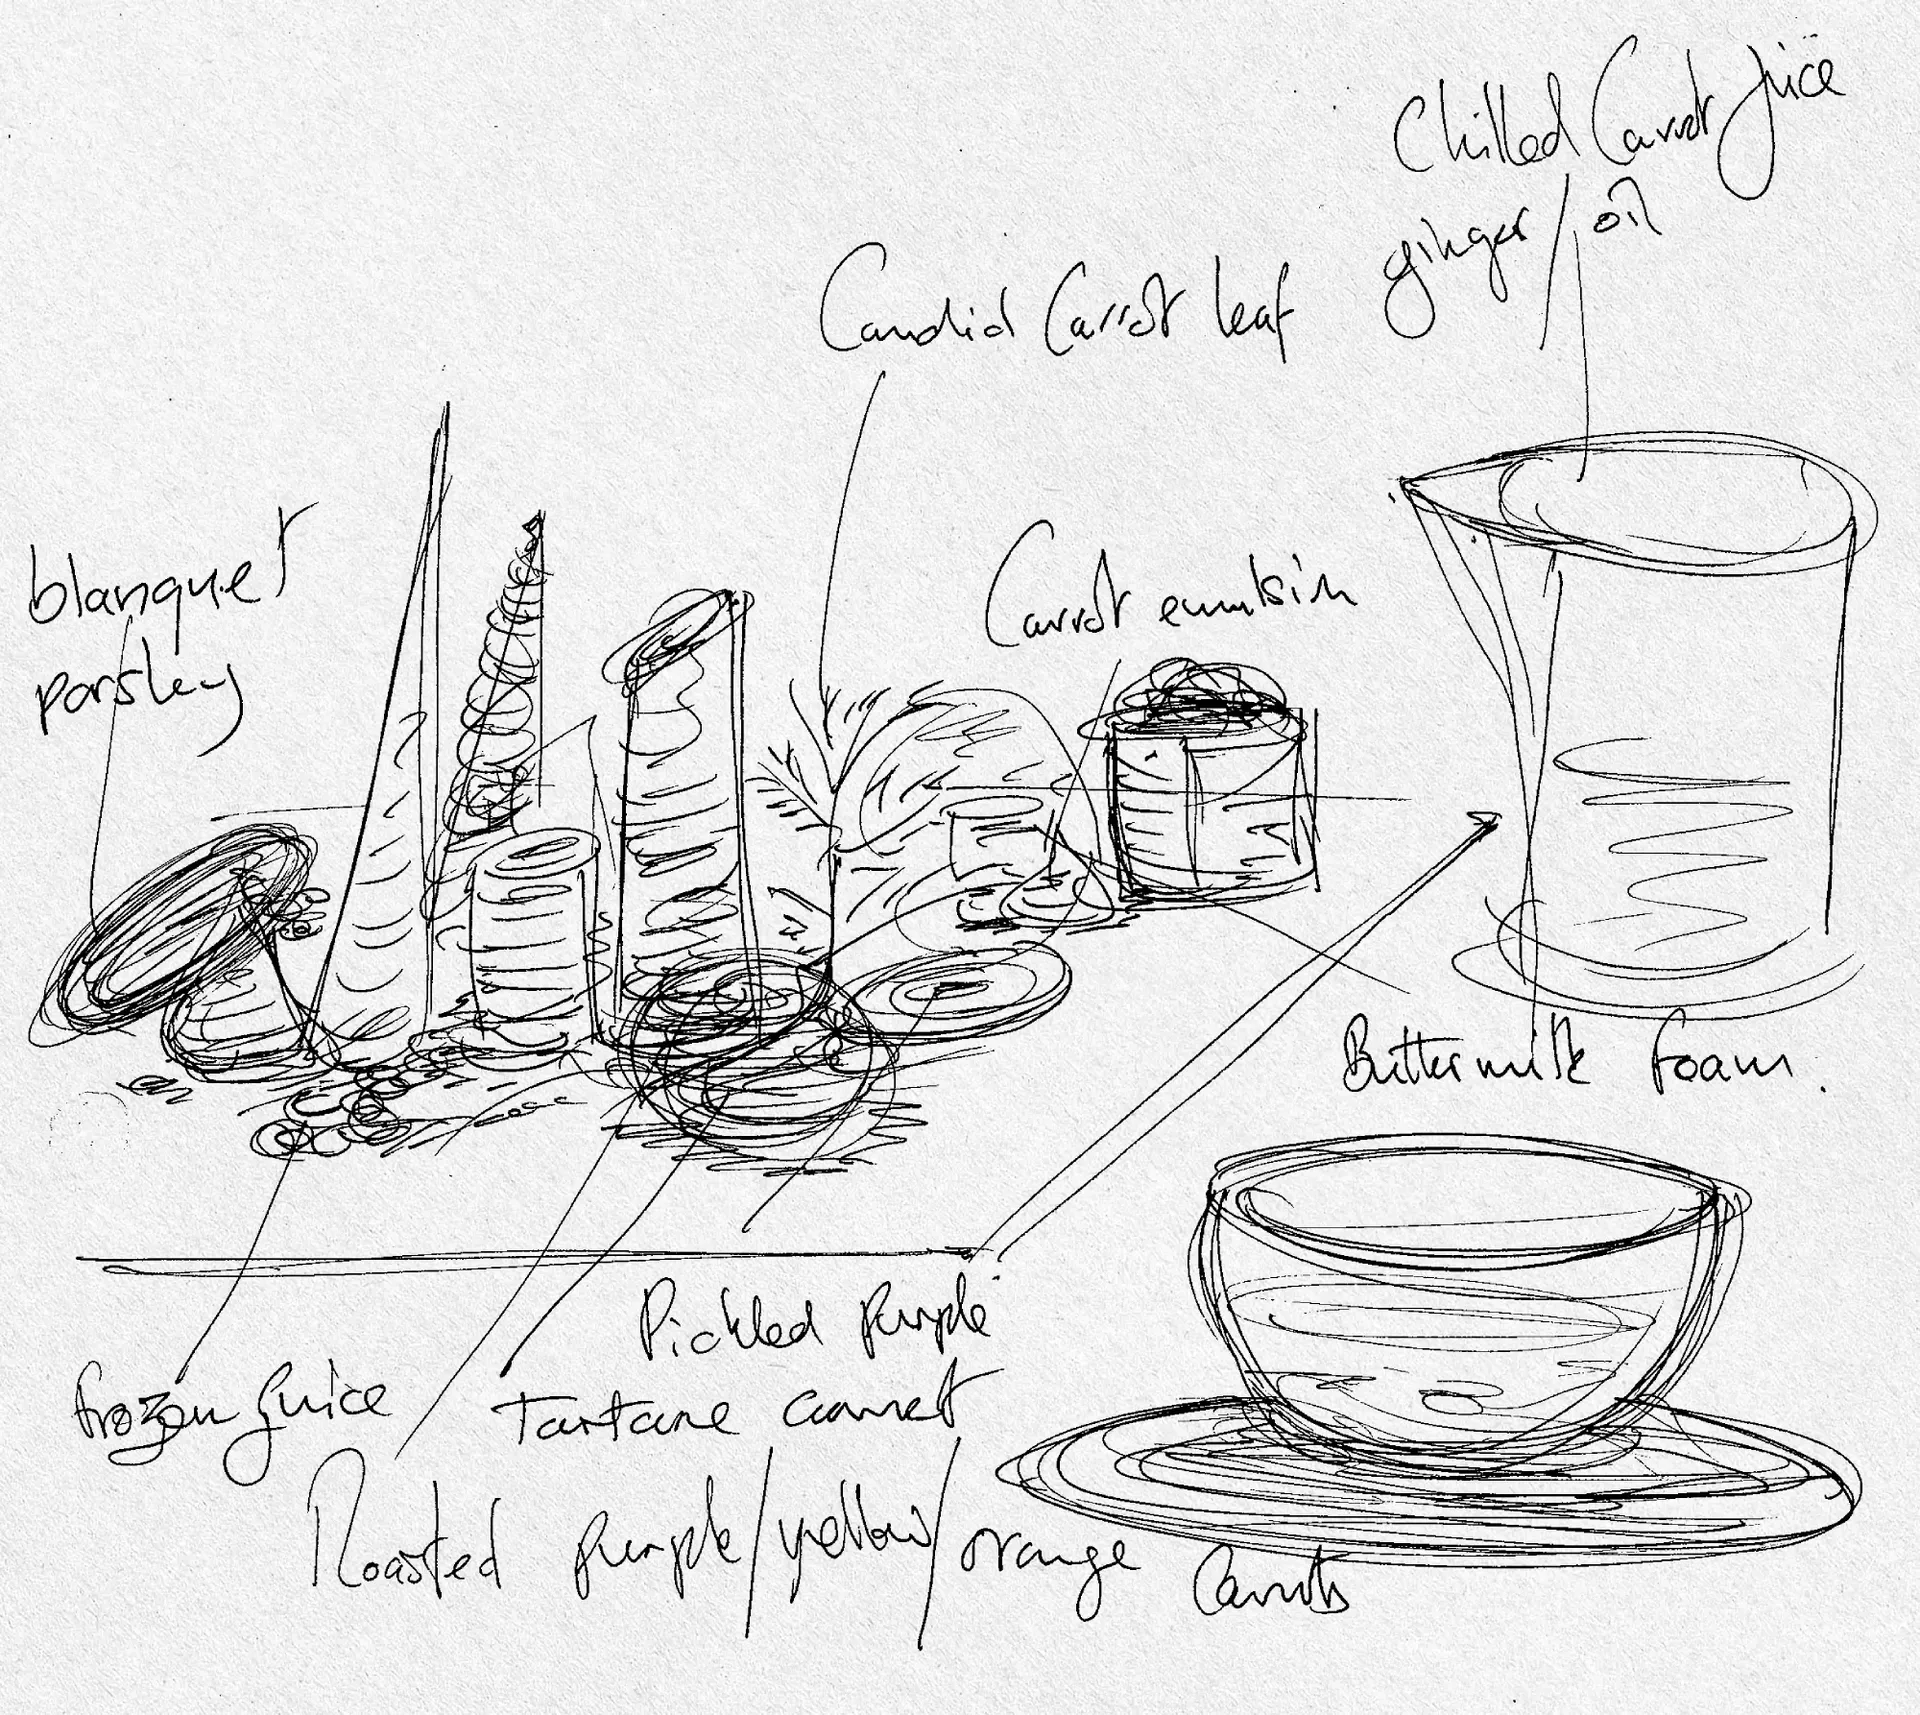 Chilled Carrot Juice
ginger / oil
Candid Carrot leaf
blanquet
parsley
Carrot emulsion
Buttermilk foam.
Pickled purple
frozen Juice
Tartare carrot
Roasted purple/yellow/orange Carrots